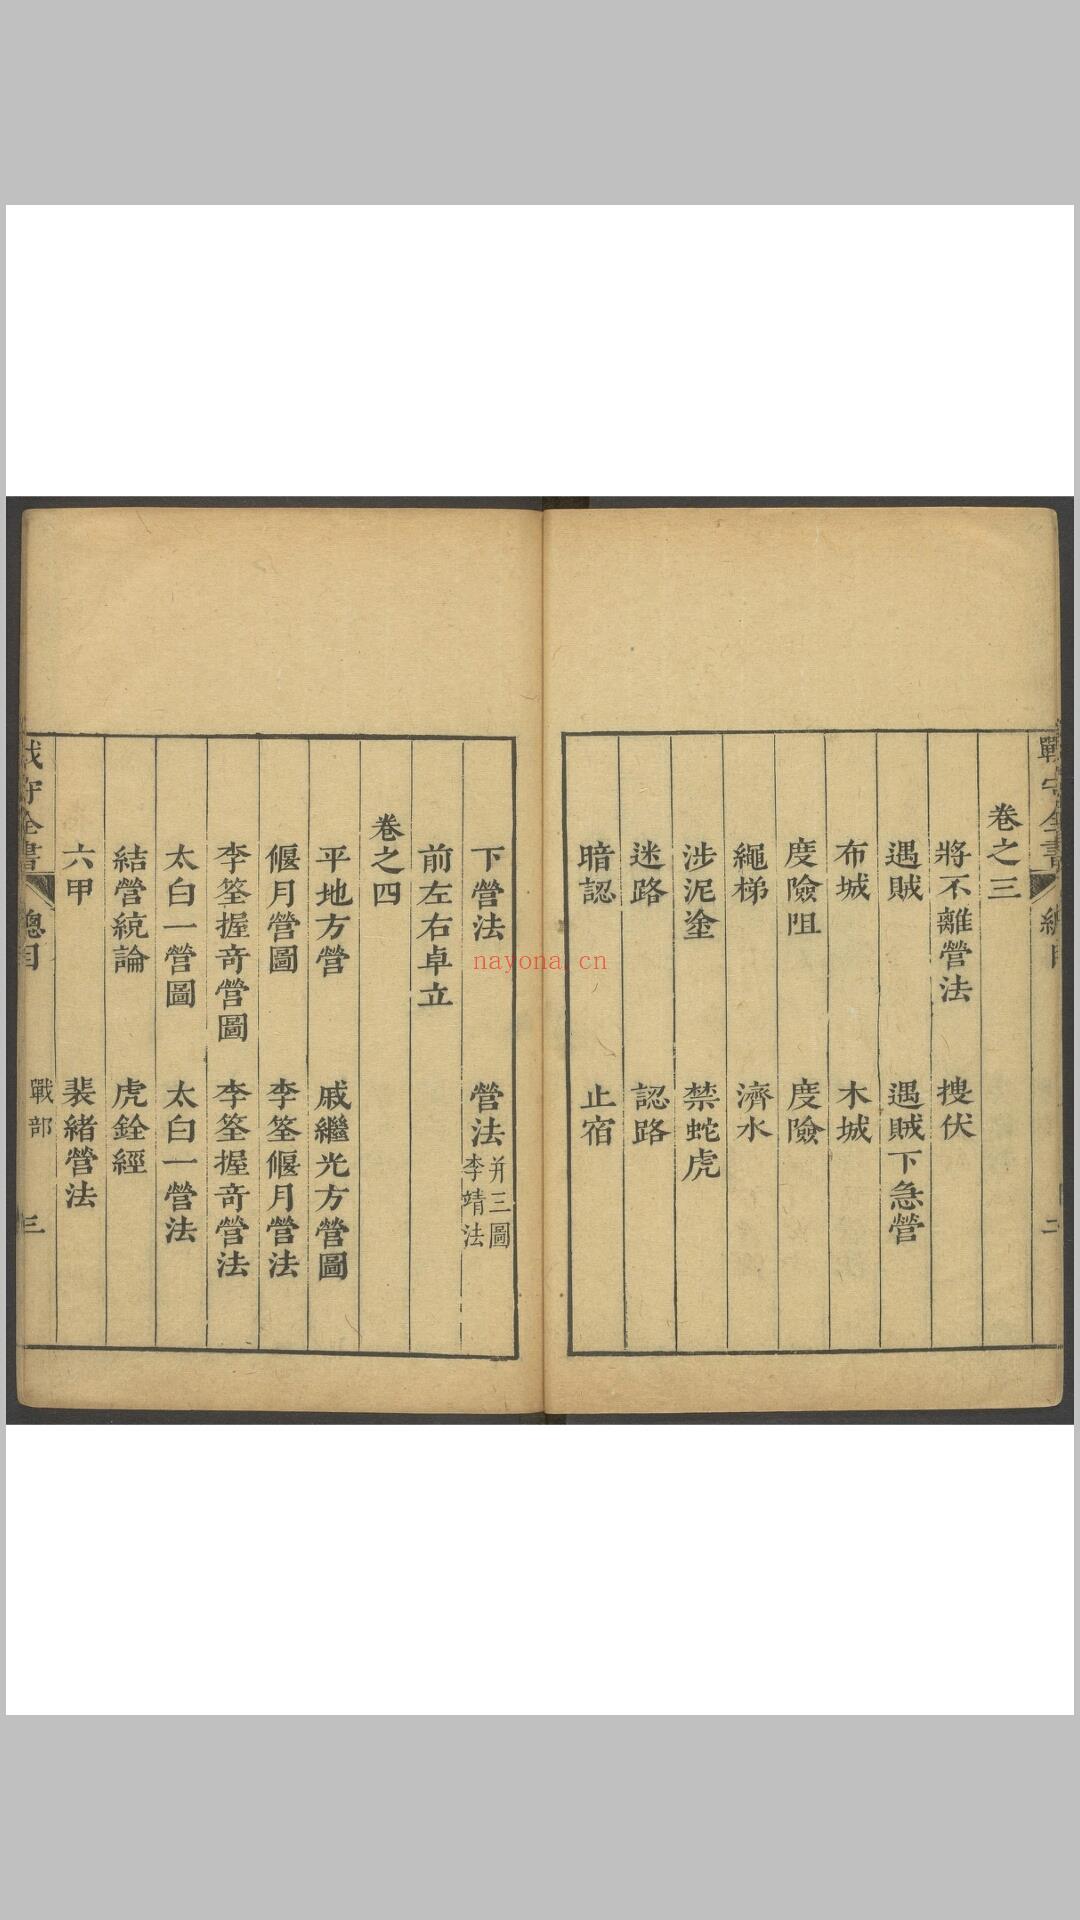 戰守全書 總目 二
卷之三
將不離營法 搜伏
遇賊 遇賊下急營
布城 木城
度險阻 度險
繩梯 濟水
涉泥塗 禁蛇虎
迷路 認路
暗認 止宿
下營法 營法 并三圖 李靖法
前左右卓立
卷之四
平地方營 戚繼光方營圖
偃月營圖 李筌偃月營法
李筌握奇營圖 李筌握奇營法
太白一營圖 太白一營法
結營統論 虎鈐經
六甲 裴緒營法
戰守全書 總目 戰部 三
nayona.cn